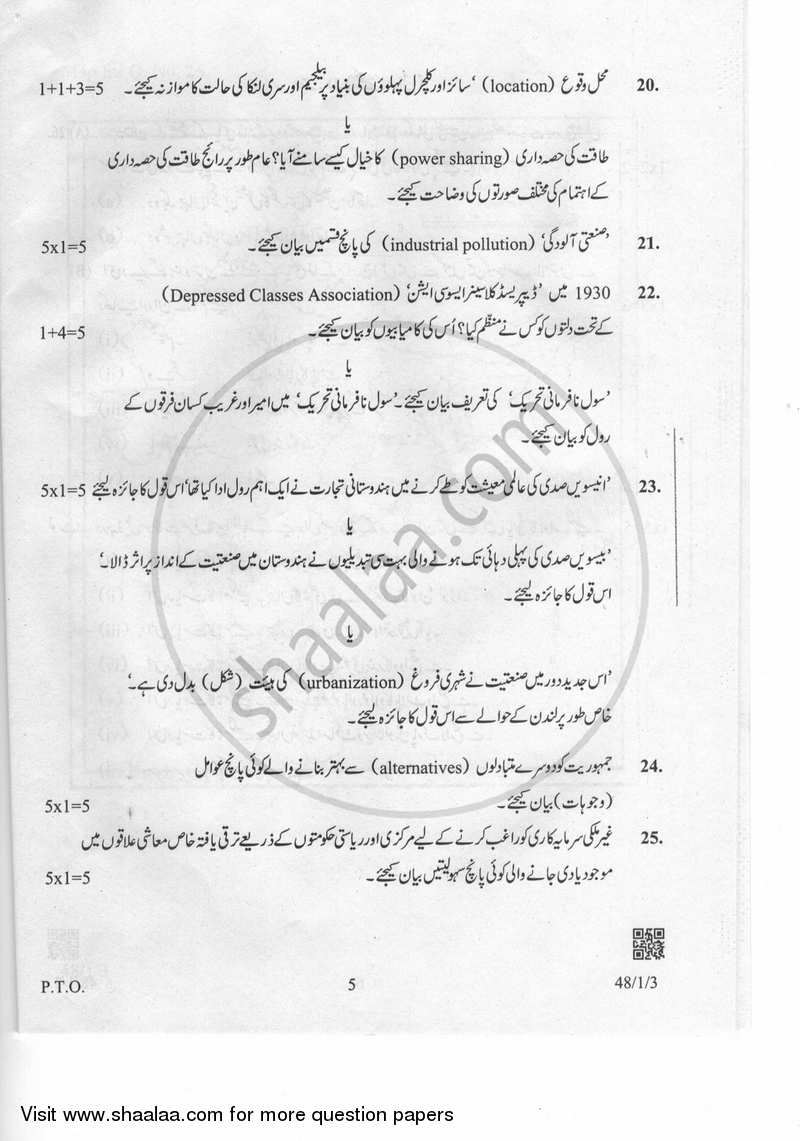 20. محل وقوع (location)، سائز اور کلچرل پہلوؤں کی بنیاد پر بیلجیم اور سری لنکا کی حالت کا موازنہ کیجئے۔ 1+1+3=5
یا
طاقت کی حصہ داری (power sharing) کا خیال کیسے سامنے آیا؟ عام طور پر رائج طاقت کی حصہ داری
کے اہتمام کی مختلف صورتوں کی وضاحت کیجئے۔
21. ’صنعتی آلودگی‘ (industrial pollution) کی پانچ قسمیں بیان کیجئے۔ 5x1=5
22. 1930 میں ’ڈیپریسڈ کلاسیز ایسوسی ایشن‘ (Depressed Classes Association)
کے تحت دلتوں کو کس نے منظّم کیا؟ اُس کی کامیابیوں کو بیان کیجئے۔ 1+4=5
یا
’سول نافرمانی تحریک‘ کی تعریف بیان کیجئے۔ ’سول نافرمانی تحریک‘ میں امیر اور غریب کسان فرقوں کے
رول کو بیان کیجئے۔
23. ’انیسویں صدی کی عالمی معیشت کو طے کرنے میں ہندوستانی تجارت نے ایک اہم رول ادا کیا تھا‘ اس قول کا جائزہ لیجئے 5x1=5
یا
’بیسویں صدی کی پہلی دہائی تک ہونے والی بہت سی تبدیلیوں نے ہندوستان میں صنعتیت کے انداز پر اثر ڈالا۔‘
اس قول کا جائزہ لیجئے۔
یا
’اس جدید دور میں صنعتیت نے شہری فروغ (urbanization) کی ہیئت (شکل) بدل دی ہے۔‘
خاص طور پر لندن کے حوالے سے اس قول کا جائزہ لیجئے۔
24. جمہوریت کو دوسرے متبادلوں (alternatives) سے بہتر بنانے والے کوئی پانچ عوامل
(وجوہات) بیان کیجئے۔ 5x1=5
25. غیر ملکی سرمایہ کاری کو راغب کرنے کے لیے مرکزی اور ریاستی حکومتوں کے ذریعے ترقی یافتہ خاص معاشی علاقوں میں
موجود یا دی جانے والی کوئی پانچ سہولیتیں بیان کیجئے۔ 5x1=5
shaalaa.com
P.T.O. 5 48/1/3
Visit www.shaalaa.com for more question papers